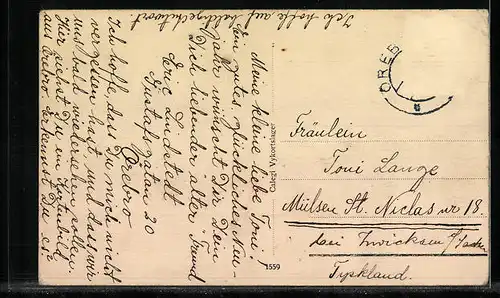 Meine kleine liebe Toni,
Ein gutes, glückliches Neu-
jahr wünscht Dir Dein
Dich liebender alter Freund
Eric Lindstedt
Gustafsgatan 20
Örebro
Ich hoffe, dass Du mich nicht
vergessen hast und dass wir
uns bald wiedersehen sollen.
Hier siehst Du ein Kartenbild
aus Örebro. Erkennst Du es?
Ich hoffe auf baldige Antwort.
Vykortslager
1559
OREB
Fräulein
Toni Lange
Mülsen St. Niclas nr 18.
bei Zwickau
Tyskland.